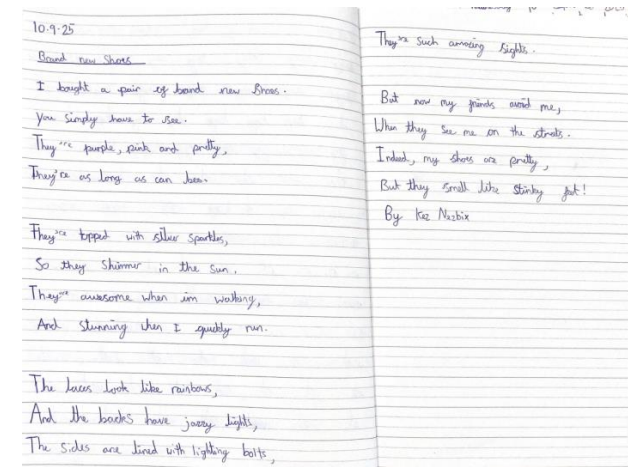 10.9.25
Brand new Shoes
I bought a pair of brand new Shoes.
You Simply have to see.
They're purple, pink and pretty,
They're as long as can bee.
They're topped with silver sparkles,
So they Shimmer in the sun.
They're awesome when im walking,
And Stunning when I quickly run.
The laces look like rainbows,
And the backs have jazzy lights,
The Sides are lined with lighting bolts,
They're Such amazing Sights.
But now my friends avoid me,
When they See me on the streets.
Indeed, my shoes are pretty,
But they Smell like Stinky feet!
By Kez Nezbix